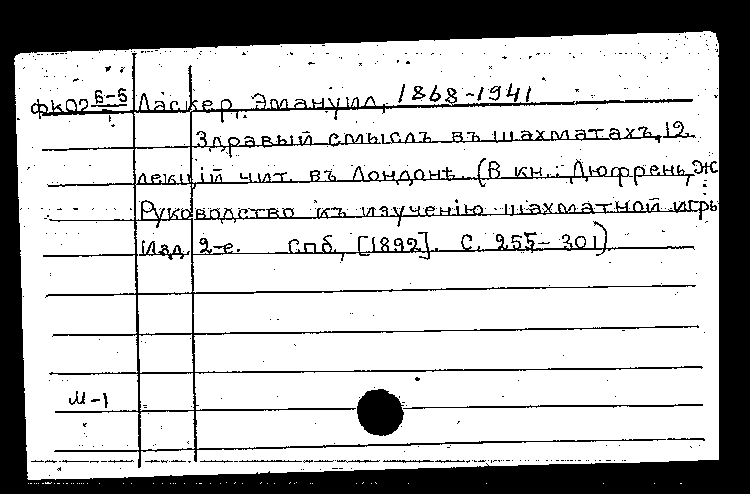 ФК02 6-5 Ласкер, Эмануил, 1868-1941
Здравый смыслъ въ шахматахъ, 12
лекцiй чит. въ Лондонѣ. (В кн.: Дюфрень, Ж
Руководство къ изученiю шахматной игры
Изд. 2-е. Спб, [1892]. С. 255-301)
М-1